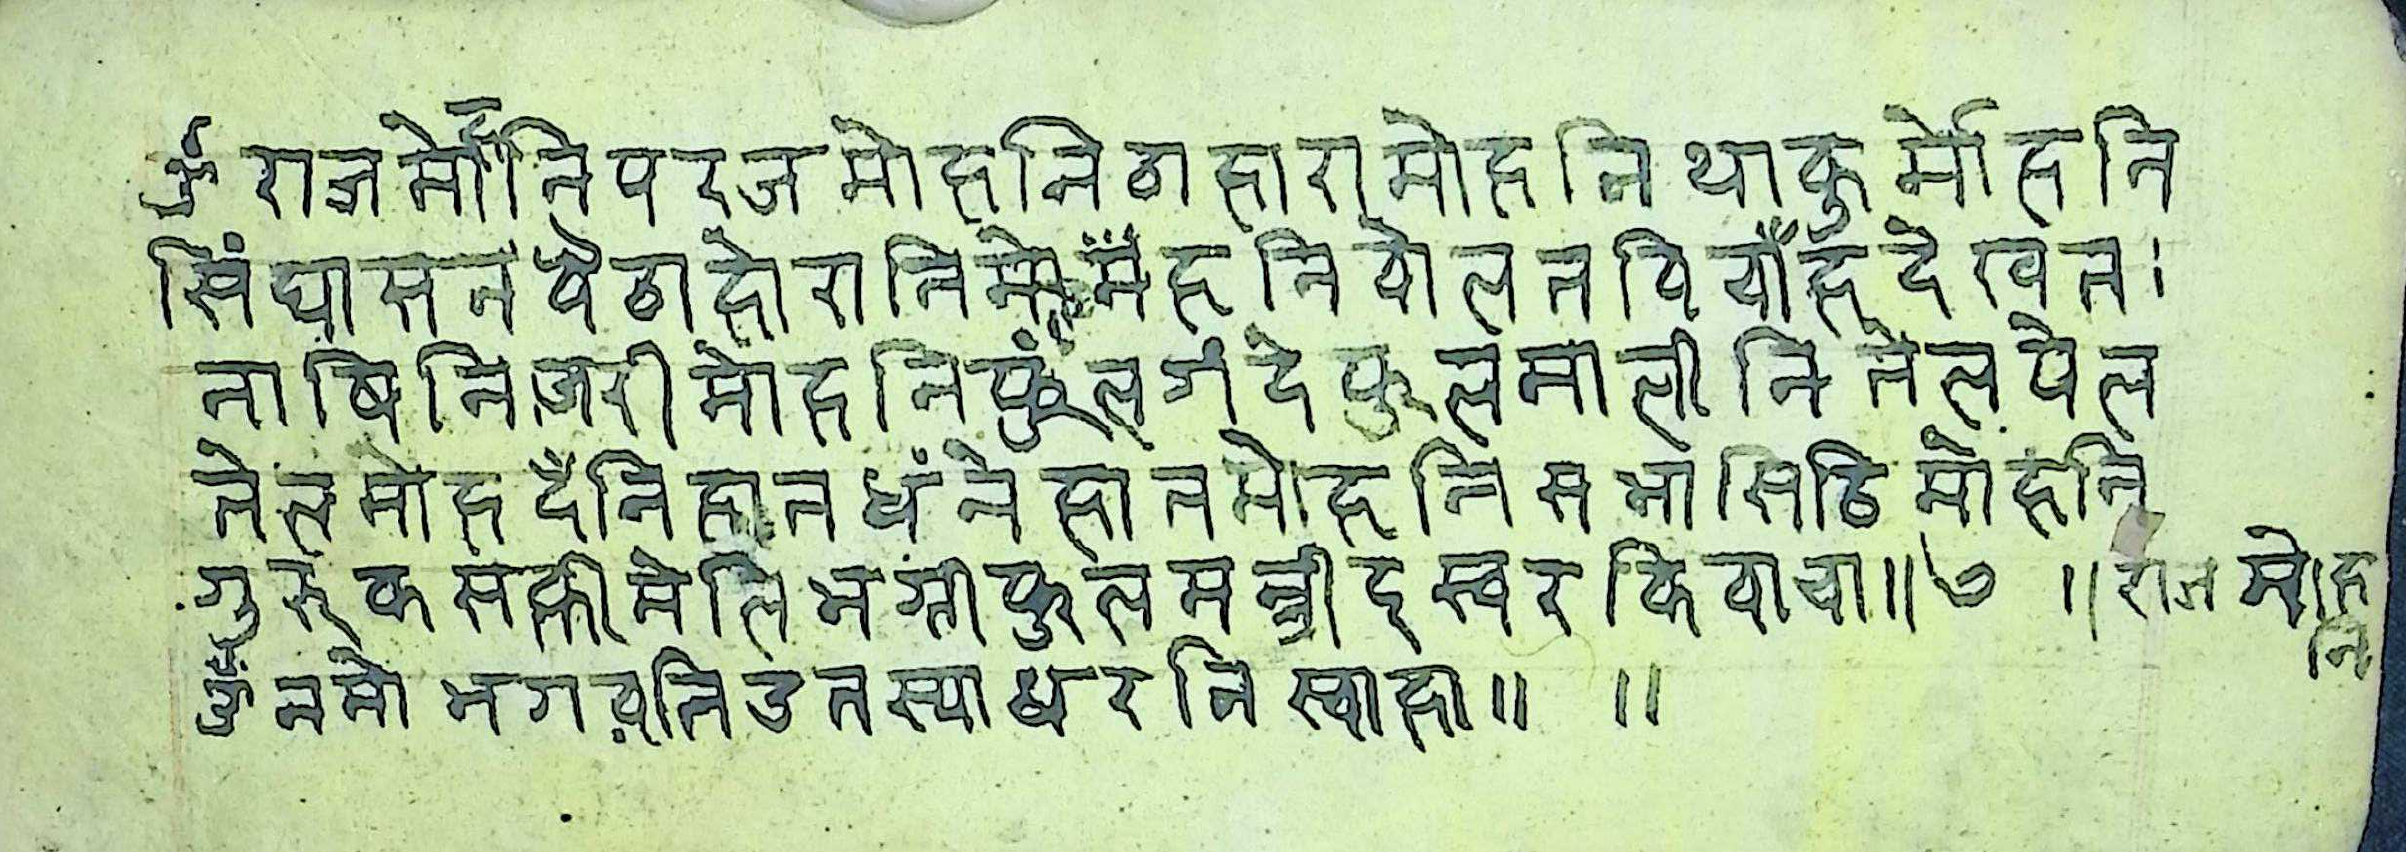 ॐ राज मोहनि परज मोहनि ठाहारा मोहनि थाकु मोहनि
सिंघासन षैठा हो रानि मोहनि वोलन वि वाँह देखत।
नाषिनि ज़री मोहनि फुंल गंदे फुल मालीनि तेल षेल
तेल मोह दँनि हान धंने हान मोहनि सभा सिठि मोहनि
गुरु क सक्ती मेलि भग्ती फुल मन्त्री इस्वर कि वाचा॥७ ॥ राज मोह
नि
ॐ नमो भगव़ति उतस्या धरनि स्वाहा॥ ॥